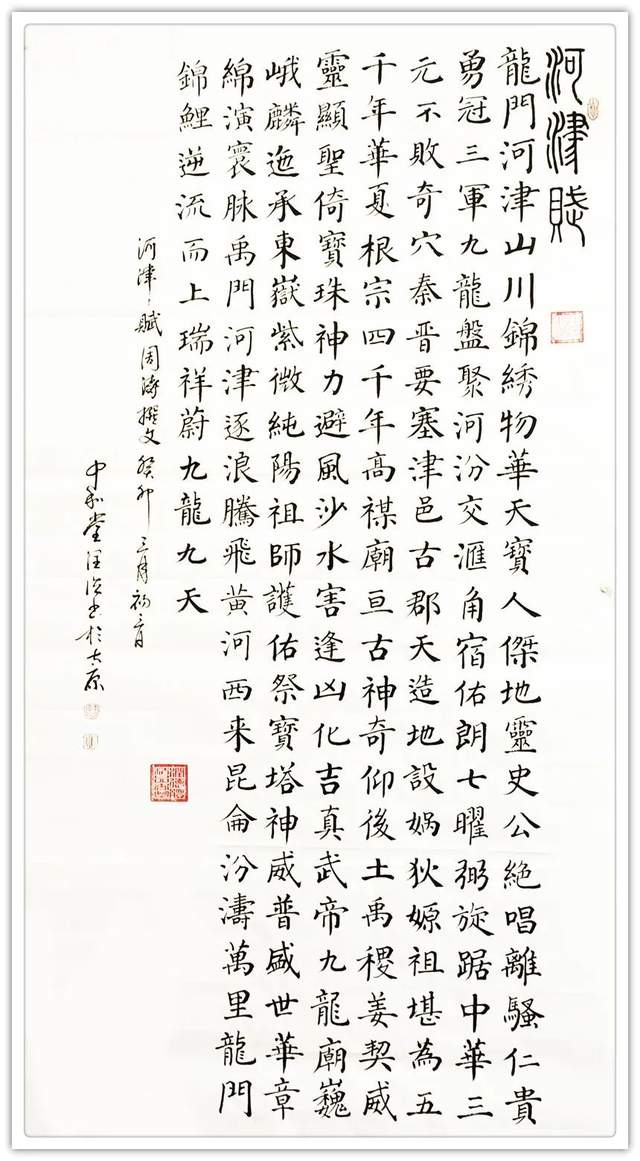 河津賦
龍門河津山川錦綉物華天寶人傑地靈史公絶唱離騷仁貴
勇冠三軍九龍盤聚河汾交滙角宿佑朗七曜弼旋踞中華三
元不敗奇穴秦晋要塞津邑古郡天造地設媧狄嫄祖堪為五
千年華夏根宗四千年高禖廟亘古神奇仰後土禹稷姜契威
靈顯聖倚寶珠神力避風沙水害逢凶化吉真武帝九龍廟巍
峨麟迤承東嶽紫微純陽祖師護佑祭寶塔神威普盛世華章
綿演寰脉禹門河津逐浪騰飛黄河西来昆侖汾濤萬里龍門
錦鯉逆流而上瑞祥蔚九龍九天
河津賦周濤撰文癸卯三月初三日
中和堂汪浩書於太原